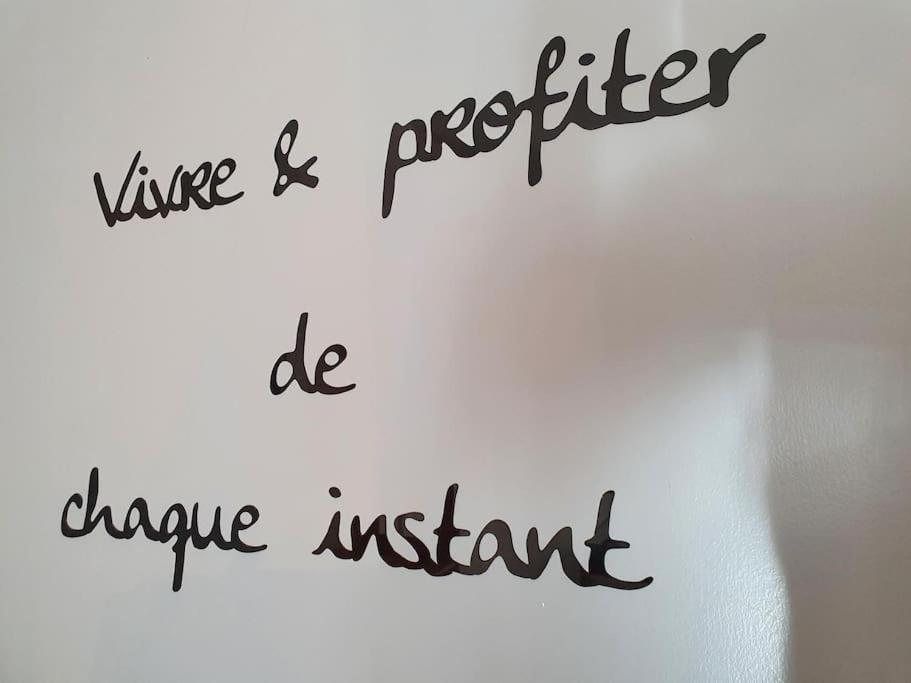 Vivre & profiter
de
chaque instant